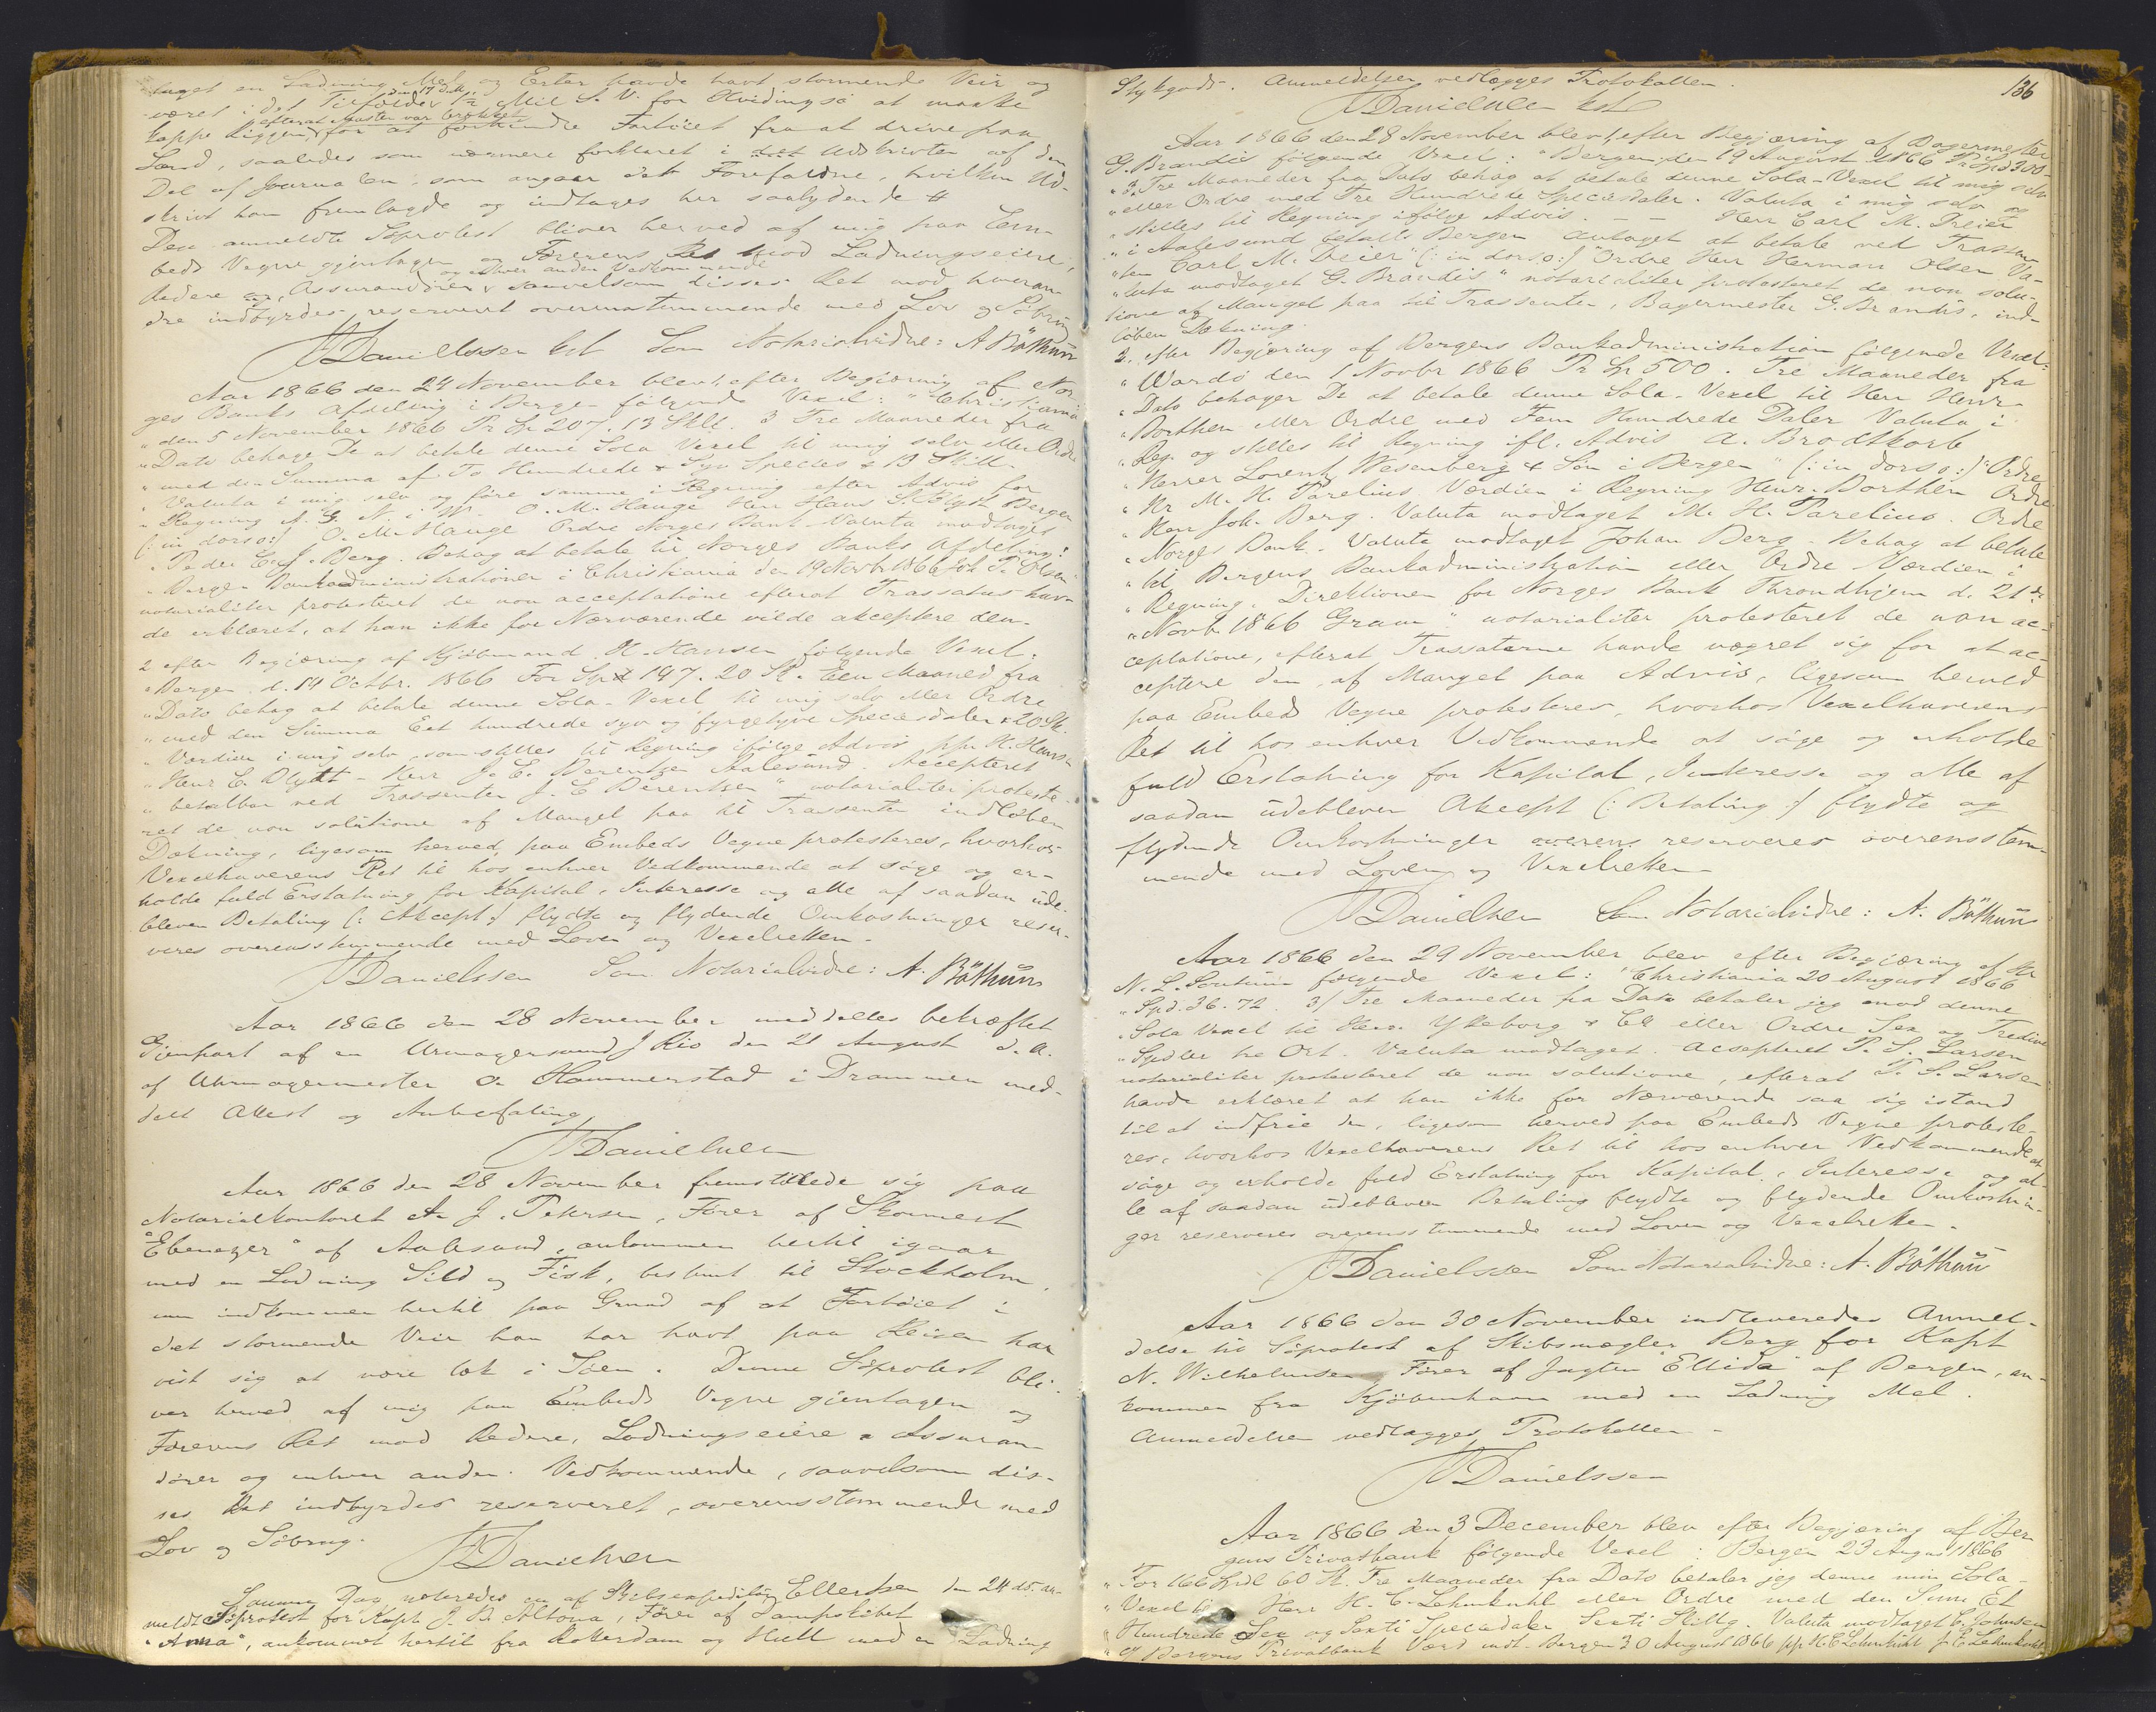 taget en Ladning Mel og Erter havde havt stormende Veir og
den 17 d. M.
været i det Tilfælde 1½ Mil S. V. for Hvidingsö at maatte
efterat Masten var brækket
kappe Riggen for at forhindre Fartöiet fra at drive paa
Land, saaledes som nærmere forklaret i det Udskrivten af den
Del af Journalen, som angaar det Forefaldne, hvilken Ud-
skrivt han fremlagde og indtages her saalydende
Den anmeldte Söprotest bliver herved af mig paa Em-
beds Vegne gjentagen og Förerens Ret mod Ladningseiere,
og enhver anden Vedkommende
Redere og Assurandörer saavelsom disses Ret mod hveran-
dre indbyrdes reserveret overenstemmende med Lov og Söbrug
Danielssen kst Som Notarialvidne: A Böthun
Aar 1866 den 24 November blev 1, efter Begjæring af Nor-
ges Banks Afdeling i Bergen følgende Vexel: "Christiania
"den 5 November 1866 Pr Sp 207. 13 Skll. 3 Tre Maaneder fra
"Dato behage De at betale denne Sola Vexel til mig selv eller Ordre
"med den Summa af To Hundrede & Syv Species & 13 Skill.
"Valuta i mig selv og före samme i Regning efter Advis for
"Regning A. G. N. i W. O. M. Hauge Herr Hans S. Blytt Bergen
(: in dorso:) O. M. Hauge Ordre Norges Bank Valuta modtaget
"Peder C. J. Berg. Behag at betale til Norges Banks Afdeling i
"Bergen Bankadministrationen i Christiania den 19 Novbr 1866 Joh P. Olsen"
notarialiter protesteret de non acceptatione efterat Trassatus hav-
de erklæret, at han ikke for Nærværende vilde akceptere den.
2 efter Begjæring af Kjöbmand H. Hansen følgende Vexel:
"Bergen d. 14 Octbr. 1866 For Sp 147. 20 Sk. Een Maaned fra
"Dato behag at betale denne Sola-Vexel til mig selv eller Ordre
"med den Summa Eet hundrede syv og fyrgetyve Speciesdaler & 20 Sk.
"Værdien i mig selv, som stilles til Regning ifölge Advis ppr H. Hansen
"Henr C. Blydt - Herr J. E. Berentsen Aalesund. Accepteret
"betalbar ved Trassenten J. E Berentsen" notarialiter proteste-
ret de non solutione af Mangel paa til Trassenten indloben
Dækning, ligesom herved, paa Embeds Vegne protesteres, hvorhos
Vexelhaverens Ret til hos enhver Vedkommende at söge og er-
holde fuld Erstatning for Kapital, Interesse og alle af saadan ude-
bleven Betaling (: Akcept :) flydte og flydende Omkostninger reser-
veres overensstemmende med Loven og Vexelretten -
Danielssen Som Notarialvidne: A. Böthun
Aar 1866 den 28 November meddeltes bekræftet
Gjenpart af en Urmagersvend J Riis den 21 August d. A.
af Uhrmagermester O. Hammerstad i Drammen med-
delt Attest og Anbefaling
Danielssen
Aar 1866 den 28 November fremstillede sig paa
Notarialkontoret A. J. Petersen, Förer af Skonnert
"Ebenezer" af Aalesund, ankommen hertil igaar
med en Ladning Sild og Fisk, bestemt til Stockholm,
men indkommen hertil paa Grund af at Fartöiet i
det stormende Veir han har havt paa Reisen har
vist sig at være læk i Söen. Denne Söprotest bli-
ver herved af mig paa Embeds Vegne gjentagen og
Förerens Ret mod Redere, Ladningseiere & Assuran-
dörer og enhver anden Vedkommende, saavelsom dis-
ses Ret indbyrdes reserveret, overensstemmende med
Lov og Söbrug.
Danielssen
Samme Dag noteredes en af Skibsexpeditör Ellertsen den 24 ds. an-
meldt Söprotest for Kapt J. B. Altona, Förer af Dampskibet
"Anna", ankommet hertil fra Rotterdam og Hull med en Ladning
136
Stykgods. Anmeldelsen vedlægges Protokollen.
Danielssen kst
Aar 1866 den 28 November blev 1, efter Begjæring af Bagermester
G. Brandis følgende Vexel: "Bergen den 19 August 1866 Pr Spd 300-
"3. Tre Maaneder fra Dato behag at betale denne Sola-Vexel til mig selv
"eller Ordre med Tre Hundrede Speciesdaler. Valuta i mig selv og
"stilles til Regning ifölge Advis. - - Herr Carl M. Breier
"i Aalesund betalb. Bergen Antaget at betale ved Trassen-
"ten Carl M. Breier" (: in dorso:) "Ordre Herr Herman Olsen Va-
"luta modtaget G. Brandis" notarialiter protesteret de non solu-
tione af Mangel paa til Trassenten, Bagermester G. Brandis, ind-
löben Dækning.
2. efter Begjæring af Bergens Bankadministration følgende Vexel:
"Wardö den 1 Novbr 1866 Pr Sp 500. Tre Maaneder fra
"Dato behager De at betale denne Sola-Vexel til Herr Henr.
"Dorthen eller Ordre med Fem Hundrede Daler Valuta i
"Reg. og stilles til Regning ifl. Advis A. Brodtkorb
"Herrer Lorentz Wesenberg & Sön i Bergen" (: in dorso:) "Ordre
"Hr M. H. Parelius Værdien i Regning Henr. Dorthen Ordre
"Herr Joh. Berg. Valuta modtaget M. H. Parelius. Ordre
"Norges Bank. Valuta modtaget Johan Berg - Behag at betale
"til Bergens Bankadministration eller Ordre Værdien i
"Regning. Direktionen for Norges Bank Throndhjem d. 21de
"Novb. 1866 Gram" notarialiter protesteret de non ac-
ceptatione, efterat Trassaterne havde vægret sig for at ac-
ceptere den, af Mangel paa Advis, ligesom herved
paa Embeds Vegne protesteres, hvorhos Vexelhaverens
Ret til hos enhver Vedkommende at söge og erholde
fuld Erstatning for Kapital, Interesse og alle af
saadan udebleven Akcept (: Betaling :) flydte og
flydende Omkostninger overens reserveres overensstem-
mende med Loven og Vexelretten -
Danielssen Som Notarialvidne: A. Böthun
Aar 1866 den 29 November blev efter Begjæring af Hr
N. L. Sontum følgende Vexel: "Christiania 20 August 1866
"Spd. 36. 72. 3/ Tre Maaneder fra Dato betaler jeg mod denne
"Sola Vexel til Herr Ykeborg & Co eller Ordre Sex og Tredive
"Spdler tre Ort. Valuta modtaget. Acsepteret P. S. Larsen
notarialiter protesteret de non solutione, efterat P. S. Larsen
havde erklæret at han ikke for Nærværende saa sig istand
til at indfrie den, ligesom herved paa Embeds Vegne proteste-
res, hvorhos Vexelhaverens Ret til hos enhver Vedkommende at
söge og erholde fuld Erstatning for Kapital, Interesse og al-
le af saadan udebleven Betaling flydte og flydende Omkostnin-
ger reserveres overensstemmende med Loven og Vexelretten.
Danielssen Som Notarialvidne: A. Böthun
Aar 1866 den 30 November indleveredes Anmel-
delse til Söprotest af Skibsmægler Berg for Kapt
N. Wilhelmsen, Förer af Jagten "Ellida" af Bergen, an-
kommen fra Kjöbenhavn med en Ladning Mel.
Anmeldelsen vedlægges Protokollen -
Danielssen
Aar 1866 den 3 December blev efter Begjæring af Ber-
gens Privatbank følgende Vexel: Bergen 23 August 1866
"For 166 Spdl 60 Sk. Tre Maaneder fra Dato betaler jeg denne min Sola-
"Vexel til Herr H. C. Lehmkuhl eller Ordre med den Sum Et
"Hundrede Sex og Sexti Speciedaler Sexti Skillg. Valuta modtaget E. Johnsen
"O/ Bergens Privatbank Værd mdt. Bergen 30 August 1866 pp H C Lehmkuhl J. E. Lehmkuhl